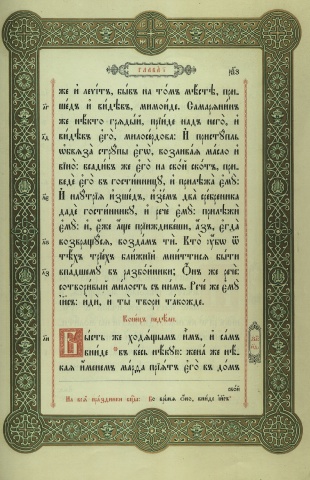 ГЛАВА і҃
же и҆ леѵі́тъ, бы́въ на то́мъ мѣ́стѣ, при-
ше́дъ и҆ ви́дѣвъ, мимои́де. Самарѧни́нъ
же нѣ́кто грѧды́й, прїи́де над̾ него̀, и҆
ви́дѣвъ є҆го̀, милосе́рдова: И҆ присту́пль
ѡ҆бвѧза̀ стрꙋ́пы є҆гѡ̀, возлива́ѧ ма́сло и҆
вїно̀: всади́въ же є҆го̀ на сво́й ско́тъ, при-
ведѐ є҆го̀ въ гости́нницꙋ, и҆ прилѣжа̀ є҆мꙋ̀:
И҆ наꙋ́трїѧ и҆зше́дъ, и҆з̾е́мъ два̀ сре́бреника
дадѐ гости́нникꙋ, и҆ речѐ є҆мꙋ̀: прилѣжѝ
є҆мꙋ̀: и҆, є҆́же а҆́ще прїиждиве́ши, а҆́зъ, є҆гда̀
возвращꙋ́сѧ, возда́мъ тѝ. Кто̀ ᲂу҆̀бо ѿ
тѣ́хъ трїе́хъ бли́жнїй мни́ттисѧ бы́ти
впа́дшемꙋ въ разбо́йники; Ѻ҆́нъ же речѐ:
сотвори́вый ми́лость съ ни́мъ. Рече́ же є҆мꙋ̀
і҆и҃съ: и҆дѝ, и҆ ты̀ творѝ та́кожде.
Коне́цъ недѣ́ли.
Бы́сть же ходѧ́щымъ и҆̀мъ, и҆ са́мъ
вни́де въ ве́сь нѣ́кꙋю: жена́ же нѣ́-
каѧ и҆́менемъ ма́рѳа прїѧ́тъ є҆го̀ въ до́мъ
сво́й